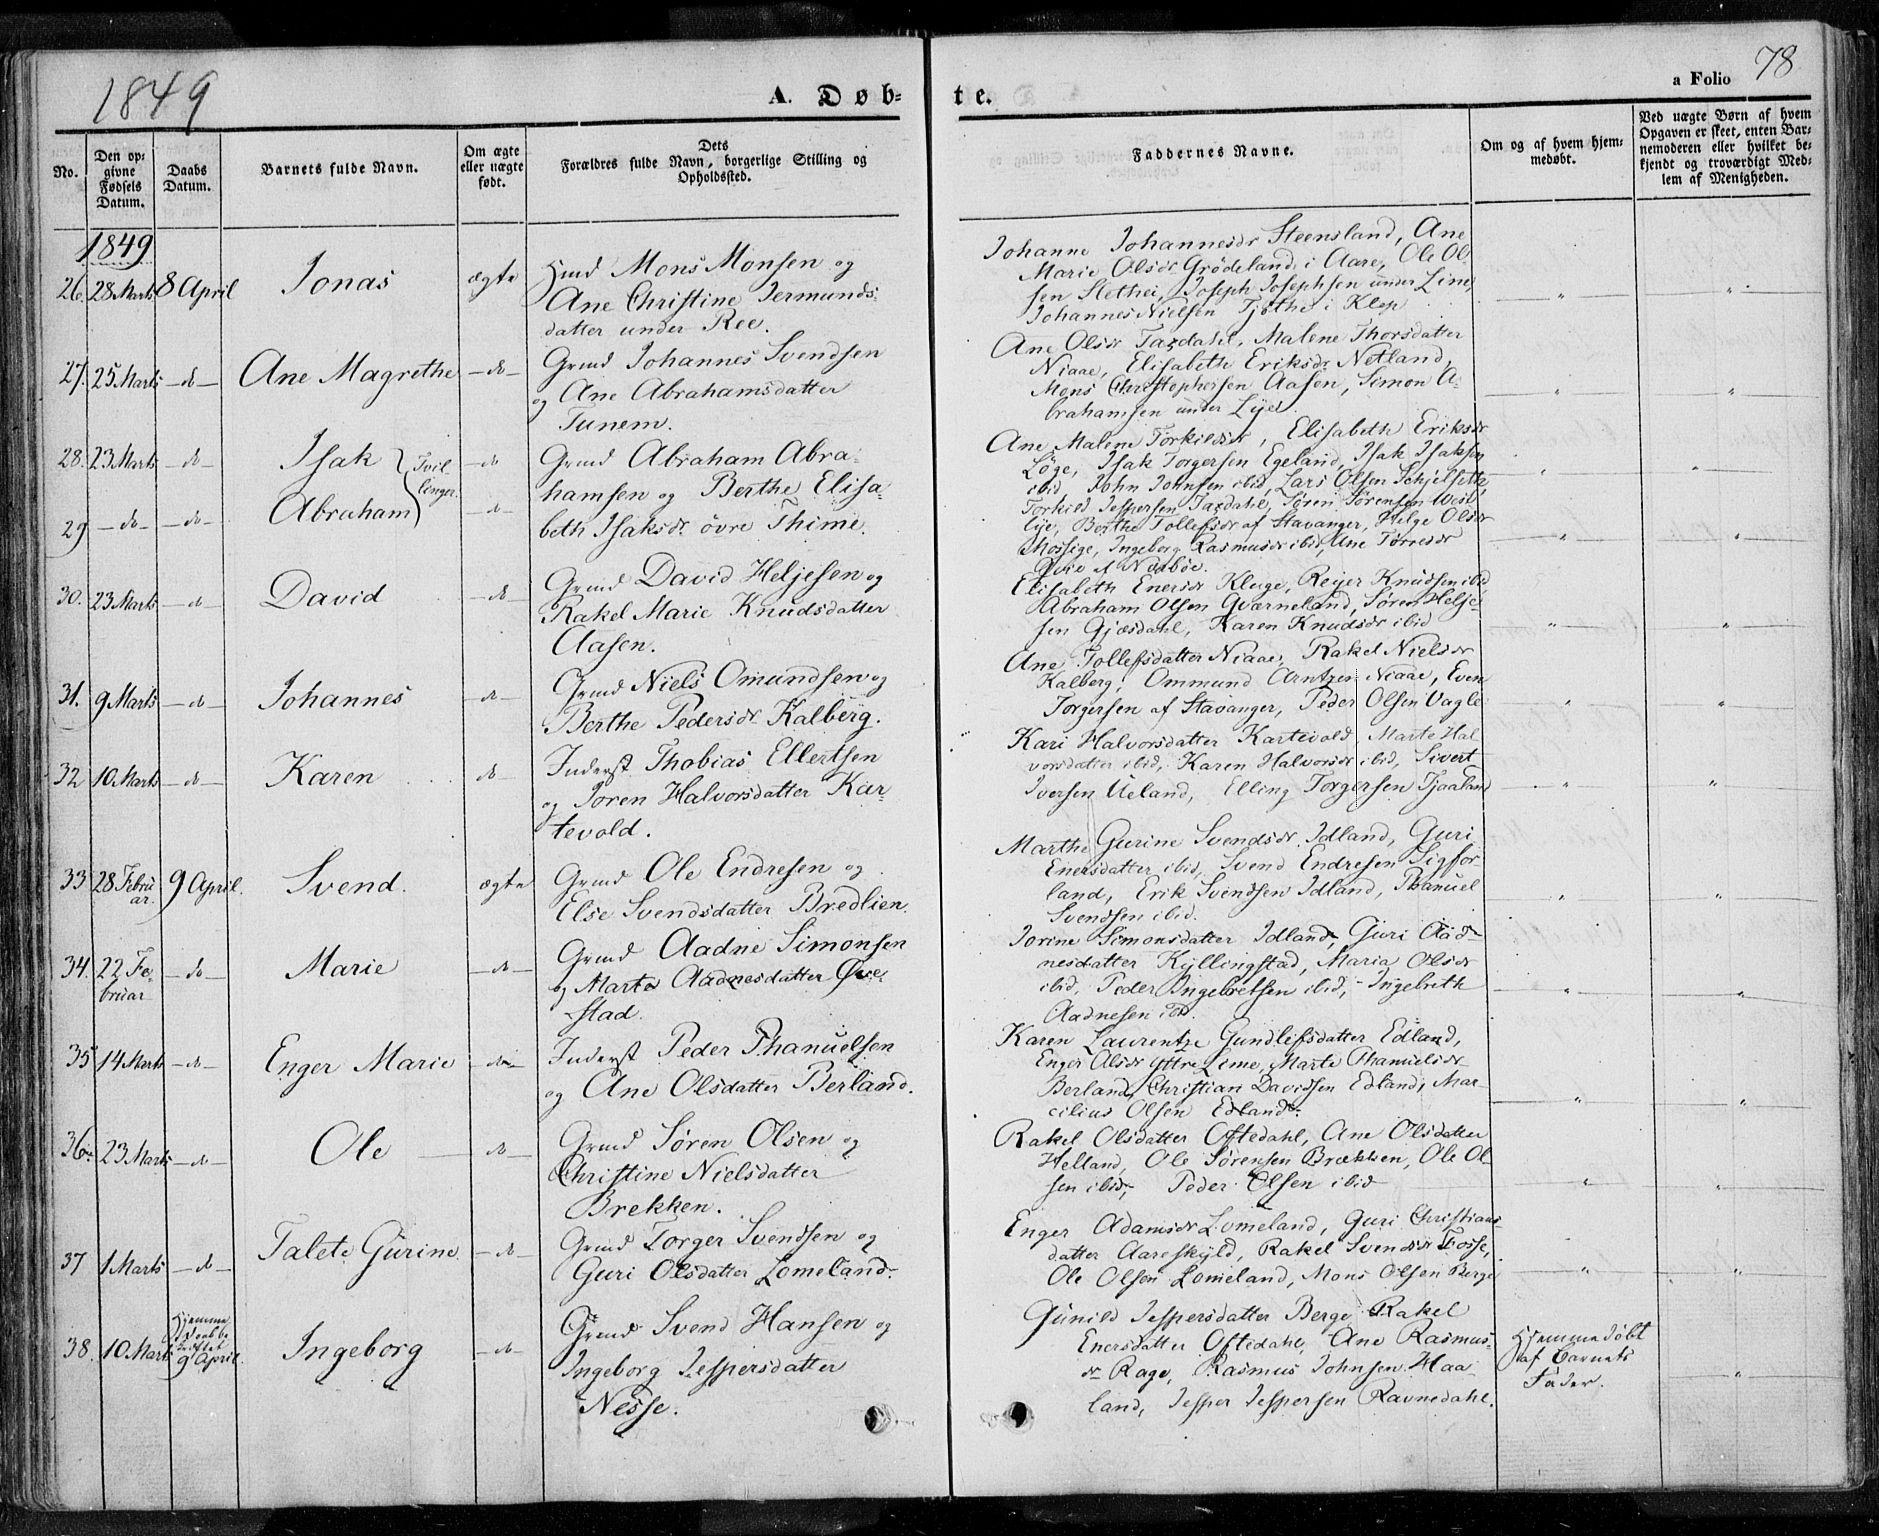 1849
A. Døb-
te.
a Folio
78
No.
Den op-
givne
Fødsels
Datum.
Daabs
Datum.
Barnets fulde Navn.
Om ægte
eller uægte
født.
Dets
Forældres fulde Navn, borgerlige Stilling og
Opholdssted.
Faddernes Navne.
Om og af hvem hjem-
medøbt.
Ved uægte Børn af hvem
Opgaven er skeet, enten Bar-
nemoderen eller hvilket be-
kjendt og troværdigt Med-
lem af Menigheden.
1849
26. 28 Marts 8 April Jonas ægte
Huusmd Mons Monsen og
Ane Christine Jermunds-
datter under Ree.
Johanne Johannesdr Steensland, Ane
Marie Olsdr Grödeland i Aare, Ole Ol-
sen Slethei, Joseph Josephsen under Lime,
Johannes Nielsen Tjøthe i Klep
27. 25 Marts - do - Ane Magrethe - do -
Grmd Johannes Svendsen
og Ane Abrahamsdatter
Tunem.
Ane Olsdr Taxdahl, Malene Thorsdatter
Niaae, Elisabeth Eriksdr Netland,
Mons Christophersen Aasen, Simon A-
brahamsen under Lye.
28. 23 Marts - do - Isak } Tvil- - do
linger.
29 - do - - do - Abraham - do -
Grmd Abraham Abra-
hamsen og Berthe Elisa-
beth Isaksdr. övre Thime.
Ane Malene Torkildsdr, Elisabeth Eriksdr
Løge, Isak Torgersen Egeland, Isak Isaksen
ibid John Johnsen ibid, Lars Olsen Schjelsette
Torkild Jespersen Taxdahl, Søren Sørensen Vest-
lye, Berthe Tollefsdr af Stavanger, Helge Olsdr
Hossige, Ingeborg Rasmusdr ibid, Ane Tørresdr
Qvie af Nærbøe.
30. 23 Marts - do - David - do -
Grmd David Heljesen og
Rakel Marie Knudsdatter
Aasen.
Elisabeth Enersdr Kluge, Reijer Knudsen ibid
Abraham Olsen Qværneland, Søren Helje-
sen Gjæsdahl, Karen Knudsdr ibid
31. 9 Marts - do - Johannes - do -
Grmd Niels Omundsen og
Berthe Pedersdr. Kalberg.
Ane Tollefsdatter Niaae, Rakel Nielsdr
Kalberg, Ommund Arntzen Niaae, Even
Torgersen af Stavanger, Peder Olsen Vagle
32 10 Marts - do - Karen do
Inderst Thobias Ellertsen
og Joren Halvorsdatter Kar-
tevold.
Kari Halvorsdatter Kartevold, Marte Hal-
vorsdatter ibid, Karen Halvorsdr ibid, Sivert
Iversen Ueland, Elling Torgersen Tjaaland
33 28 Febru- 9 April. Svend. ægte
ar.
Grmd Ole Endresen og
Else Svendsdatter Bredlien.
Marthe Gurine Svendsdr. Idland, Guri
Enersdatter ibid, Svend Endresen Sigfor-
land, Erik Svendsen Idland, Phanuel
Svendsen ibid.
34. 22 Fe- - do - Marie - do -
bruar
Grmd Aadne Simonsen
og Marta Aadnesdatter Øve-
stad.
Jorine Simonsdatter Idland, Guri Aad-
nesdatter Kyllingstad, Maria Olsdr
ibid, Peder Ingebretsen ibid, Ingebreth
Aadnesen ibid.
35 14 Marts - do - Enger Marie - do -
Inderst Peder Phanuelsen
og Ane Olsdatter Berland.
Karen Laurentze Gundlefsdatter Edland,
Enger Olsdr Yttre Lime, Marte Phanuelsdr
Berland, Christian Davidsen Edland, Mar-
cilius Olsen Edland.
36. 23 Marts - do - Ole - do -
Grmd Søren Olsen og
Christine Nielsdatter
Brekken.
Rakel Olsdatter Oftedahl, Ane Olsdatter
Helland, Ole Sørensen Brækken, Ole Ol-
sen ibid, Peder Olsen ibid
37 1 Marts - do - Talete Gurine - do -
Grmd Torger Svendsen og
Guri Olsdatter Lomeland.
Enger Adamsdr Lomeland, Guri Christians-
datter Aareskjold, Rakel Svendsdr Fosse,
Ole Olsen Lomeland, Mons Olsen Berge
38. 10 Marts Hjemme
9 April. Ingeborg - do -
Grmd Svend Hansen og
Ingeborg Jespersdatter
Nesse.
Gunild Jespersdatter Berge, Rakel
Enersdatter Oftedahl, Ane Rasmus-
dr Rage, Rasmus Johnsen Haa-
land, Jesper Jespersen Ravnedahl.
Hjemmedøbt
af Barnets
Fader.